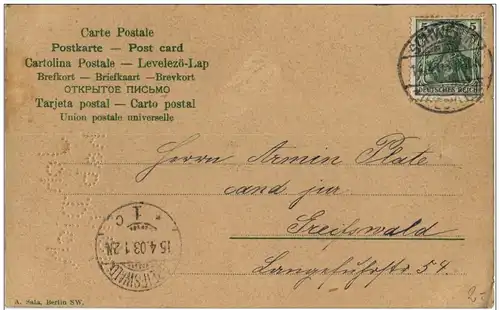 Carte Postale
Postkarte — Post card
Cartolina Postale — Levelezö-Lap
Brefkort — Briefkaart — Brevkort
ОТКРЫТОЕ ПИСЬМО
Tarjeta postal — Carto postal
Union postale universelle
5
DEUTSCHES REICH
Herrn Armin Plate
cand jur
Greifswald
Langefuhrstr 54.
* 1 C
15 4.03.1-2N.
GREIFSWALD
A. Sala, Berlin SW.
2.-